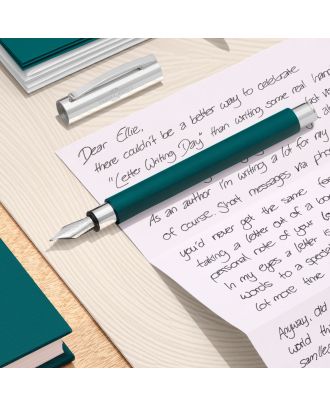 Dear Ellie,
there couldn't be a better way to celebrate
"Letter Writing Day" than writing some real han
As an author I'm writing a lot for my
of course. Short messages via pho
you'd never get the same
taking a letter out of a bo
personal note of your l
In my eyes a letter is
words to a specia
lot more time
Anyway, did
world thi